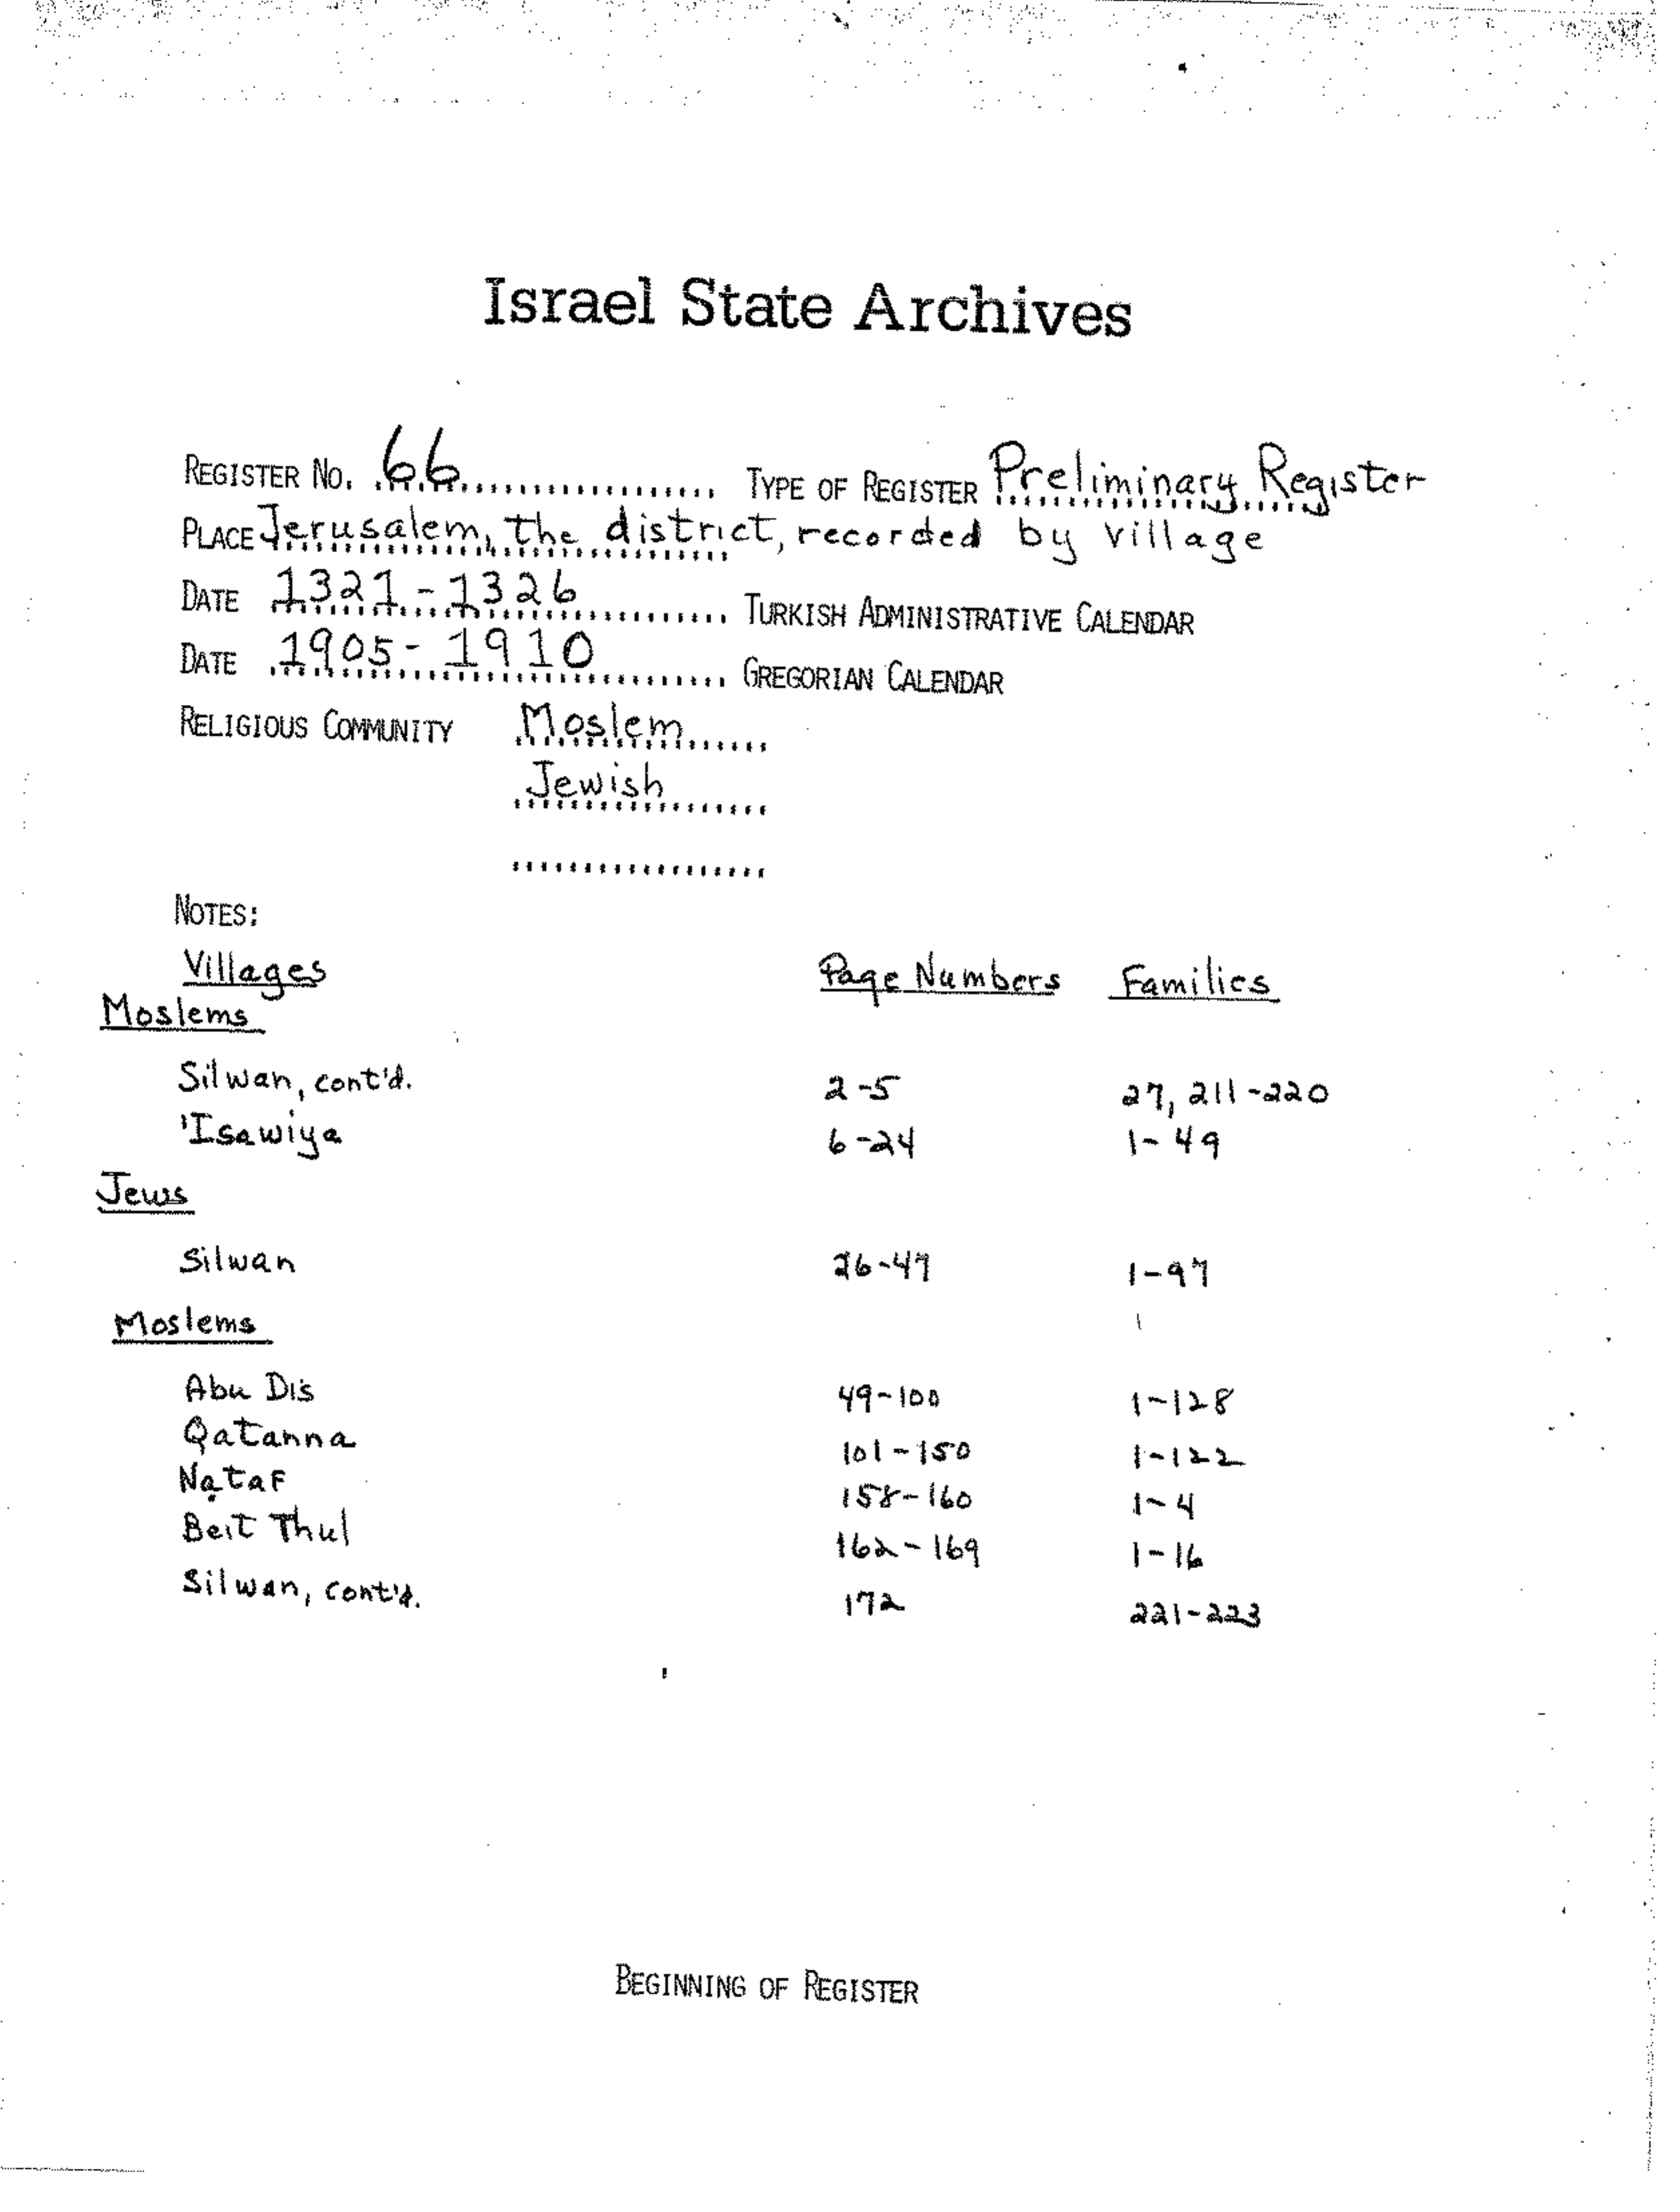 Israel State Archives
REGISTER No. 66 TYPE OF REGISTER Preliminary Register
PLACE Jerusalem, the district, recorded by village
DATE 1321-1326 TURKISH ADMINISTRATIVE CALENDAR
DATE 1905-1910 GREGORIAN CALENDAR
RELIGIOUS COMMUNITY Moslem
Jewish
NOTES:
Villages Page Numbers Families
Moslems
Silwan, cont'd. 2-5 27, 211-220
'Isawiya 6-24 1-49
Jews
Silwan 26-47 1-97
Moslems
Abu Dis 49-100 1-128
Qatanna 101-150 1-122
Nataf 158-160 1-4
Beit Thul 162-169 1-16
Silwan, cont'd. 172 221-223
BEGINNING OF REGISTER